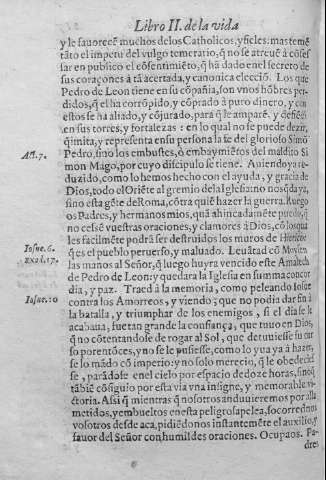 Libro II. de la vida
y le fauorecẽ muchos de los Catholicos, y fieles. mas temẽ
tãto el impetu del vulgo temeratio, q̃ no se atreuẽ à cõfes
sar en publico el cõsentimiẽto, q̃ hã dado en el secreto de
sus coraçones à tã acertada, y canonica elecciõ. Los que
Pedro de Leon tiene en su cõpañia, son vnos hõbres per-
didos, q̃ el ha corrõpido, y cõprado à puro dinero, y con
estos se ha aliado, y cõjurado, para q̃ le amparẽ, y defiẽdã
en sus torres, y fortalezas: en lo qual no se puede dezir,
q̃ imita, y representa en su persona la fe del glorioso Simõ
Act. 7.
Pedro, sino los embustes, ò embaymiẽtos del maldito Si
mon Mago, por cuyo discipulo se tiene. Auiendo ya re-
duzido, como lo hemos hecho con el ayuda, y gracia de
Dios, todo el Oriẽte al gremio de la Iglesia: no nos q̃da ya,
sino esta gẽte de Roma, cõtra quiẽ hazer la guerra. Ruego
os Padres, y hermanos mios, quã ahincadamẽte puedo, q̃
no cessẽ vuestras oraciones, y clamores à Dios, cõ los qua
les facilmẽte podrà ser destruidos los muros de Hierico:
Iosue. 6.
q̃ es el pueblo peruerso, y maluado. Leuãtad cõ Moysen
Exod. 17.
las manos al Señor, q̃ luego huyrà vencido este Amalech
de Pedro de Leon: y quedarà la Iglesia en summa concor
dia, y paz. Traed à la memoria, como peleando Iosue
Iosue. 10
contra los Amorreos, y viendo; que no podia dar fin à
la batalla, y triumphar de los enemigos, si el dia se le
acabaua, fue tan grande la confiança, que tuuo en Dios,
que no cõtentandose de rogar al Sol, que detuuiesse su cur
so por entõces, y no se le pusiesse, como lo yua ya à hazer,
se lo mãdo cõ imperio: y no solo merecio, q̃ le obedecies
se, parãdose en el cielo por espacio de doze horas, sino q̃
tãbiẽ cõsiguio por esta via vna insigne, y memorable vi-
ctoria. Assi q̃ mientras q̃ nosotros anduuieremos por alla
metidos, y embueltos en esta peligrosa pelea, socorrednos
vosotros desde aca, pidiẽdo nos instantemẽte el auxilio, y
fauor del Señor con humildes oraciones. Ocupaos. Pa-
dres